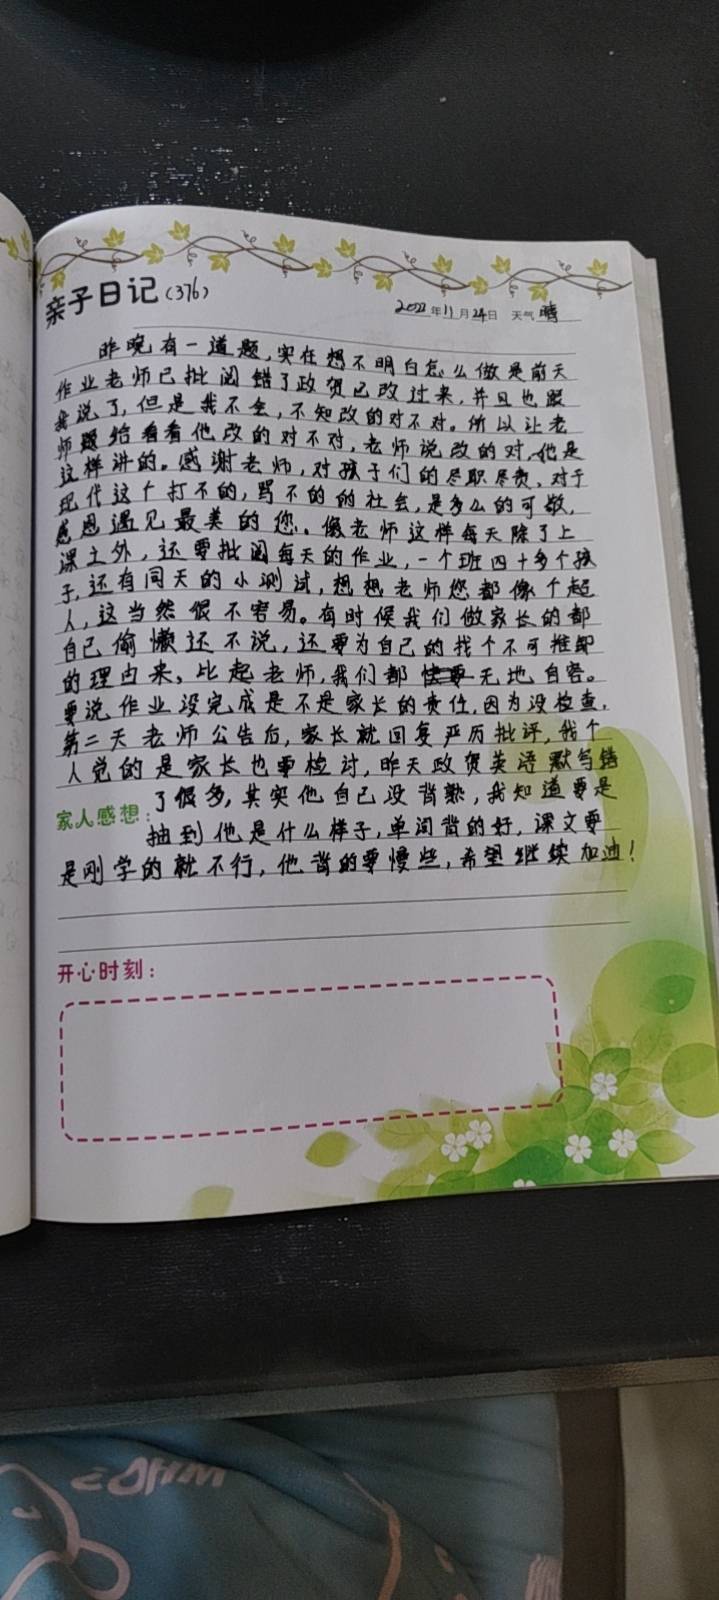 亲子日记(376)
2022年11月24日 天气 晴
昨晚有一道题,实在想不明白怎么做是前天
作业老师已批阅错了政贺已改过来,并且也跟
我说了,但是我不会,不知改的对不对。所以让老
师给看看他改的对不对,老师说改的对,他是
这样讲的。感谢老师,对孩子们的尽职尽责,对于
现代这个打不的,骂不的的社会,是多么的可敬,
感恩遇见最美的您。像老师这样每天除了上
课之外,还要批阅每天的作业,一个班四十多个孩
子,还有同天的小测试,想想老师您都像个超
人,这当然很不容易。有时候我们做家长的都
自己偷懒还不说,还要为自己的找个不可推卸
的理由来,比起老师,我们都无地自容。
要说作业没完成是不是家长的责任,因为没检查,
第二天老师公告后,家长就回复严厉批评,我个
人觉的是家长也要检讨,昨天政贺英语默写错
家人感想:了很多,其实他自己没背熟,我知道要是
抽到他是什么样子,单词背的好,课文要
是刚学的就不行,他背的要慢些,希望继续加油!
开心时刻:
WHO